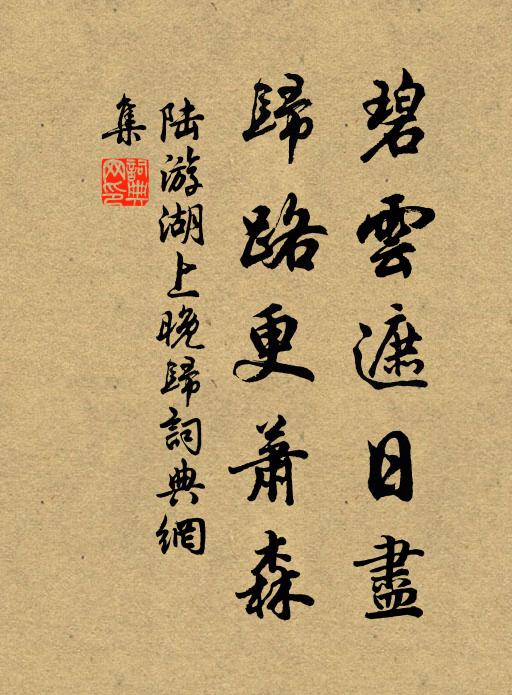 碧雲遮日盡
歸路更蕭森
陸游湖上晚歸詞典網
集
詞典
网印